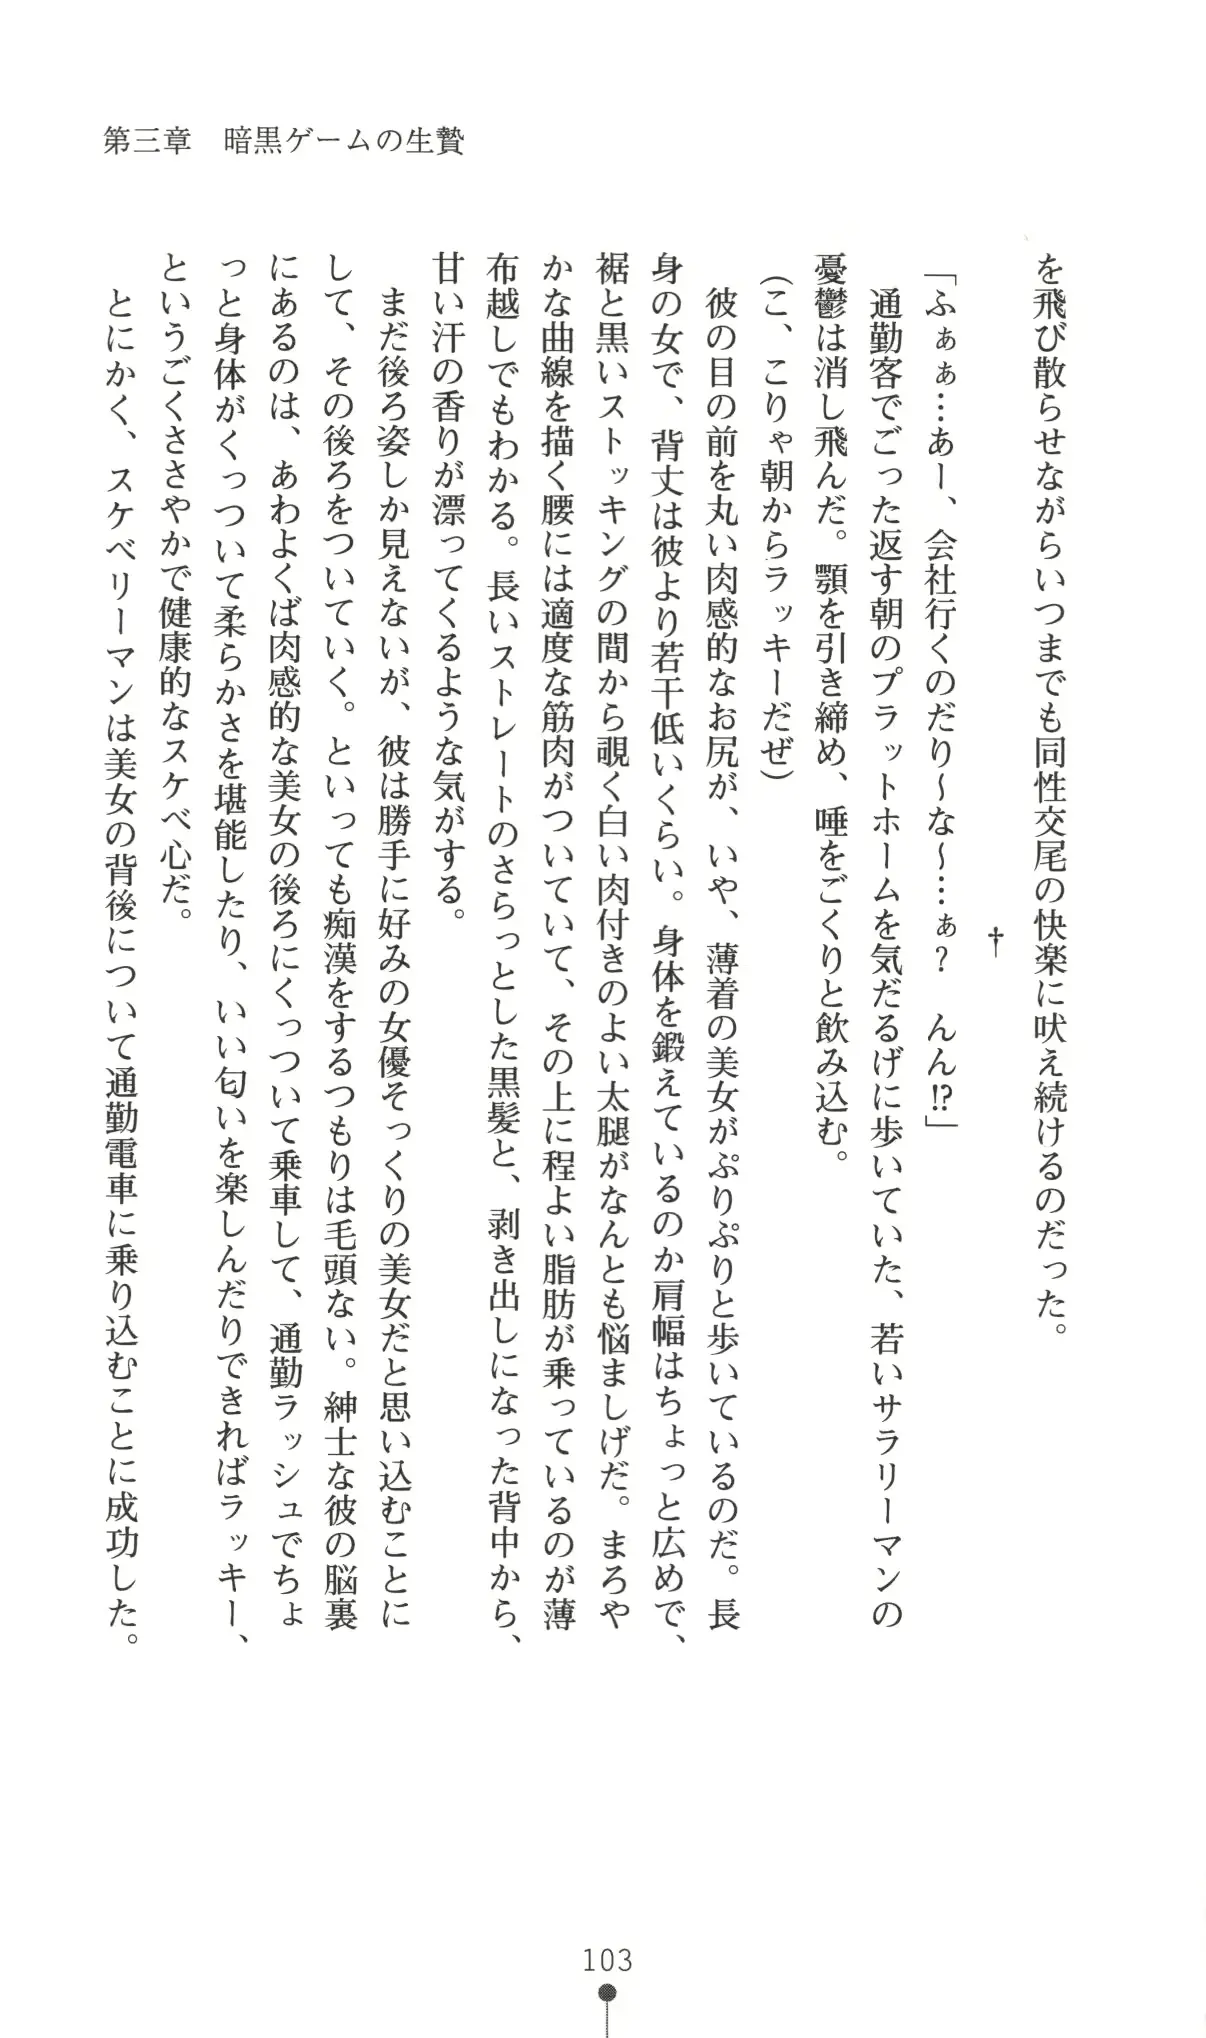 第三章　暗黒ゲームの生贄
を飛び散らせながらいつまでも同性交尾の快楽に吠え続けるのだった。
†
「ふぁぁ…あー、会社行くのだり〜な〜…ぁ？　んん⁉」
　通勤客でごった返す朝のプラットホームを気だるげに歩いていた、若いサラリーマンの
憂鬱は消し飛んだ。顎を引き締め、唾をごくりと飲み込む。
（こ、こりゃ朝からラッキーだぜ）
　彼の目の前を丸い肉感的なお尻が、いや、薄着の美女がぷりぷりと歩いているのだ。長
身の女で、背丈は彼より若干低いくらい。身体を鍛えているのか肩幅はちょっと広めで、
裾と黒いストッキングの間から覗く白い肉付きのよい太腿がなんとも悩ましげだ。まろや
かな曲線を描く腰には適度な筋肉がついていて、その上に程よい脂肪が乗っているのが薄
布越しでもわかる。長いストレートのさらっとした黒髪と、剥き出しになった背中から、
甘い汗の香りが漂ってくるような気がする。
　まだ後ろ姿しか見えないが、彼は勝手に好みの女優そっくりの美女だと思い込むことに
して、その後ろをついていく。といっても痴漢をするつもりは毛頭ない。紳士な彼の脳裏
にあるのは、あわよくば肉感的な美女の後ろにくっついて乗車して、通勤ラッシュでちょ
っと身体がくっついて柔らかさを堪能したり、いい匂いを楽しんだりできればラッキー、
というごくささやかで健康的なスケベ心だ。
　とにかく、スケベリーマンは美女の背後について通勤電車に乗り込むことに成功した。
103